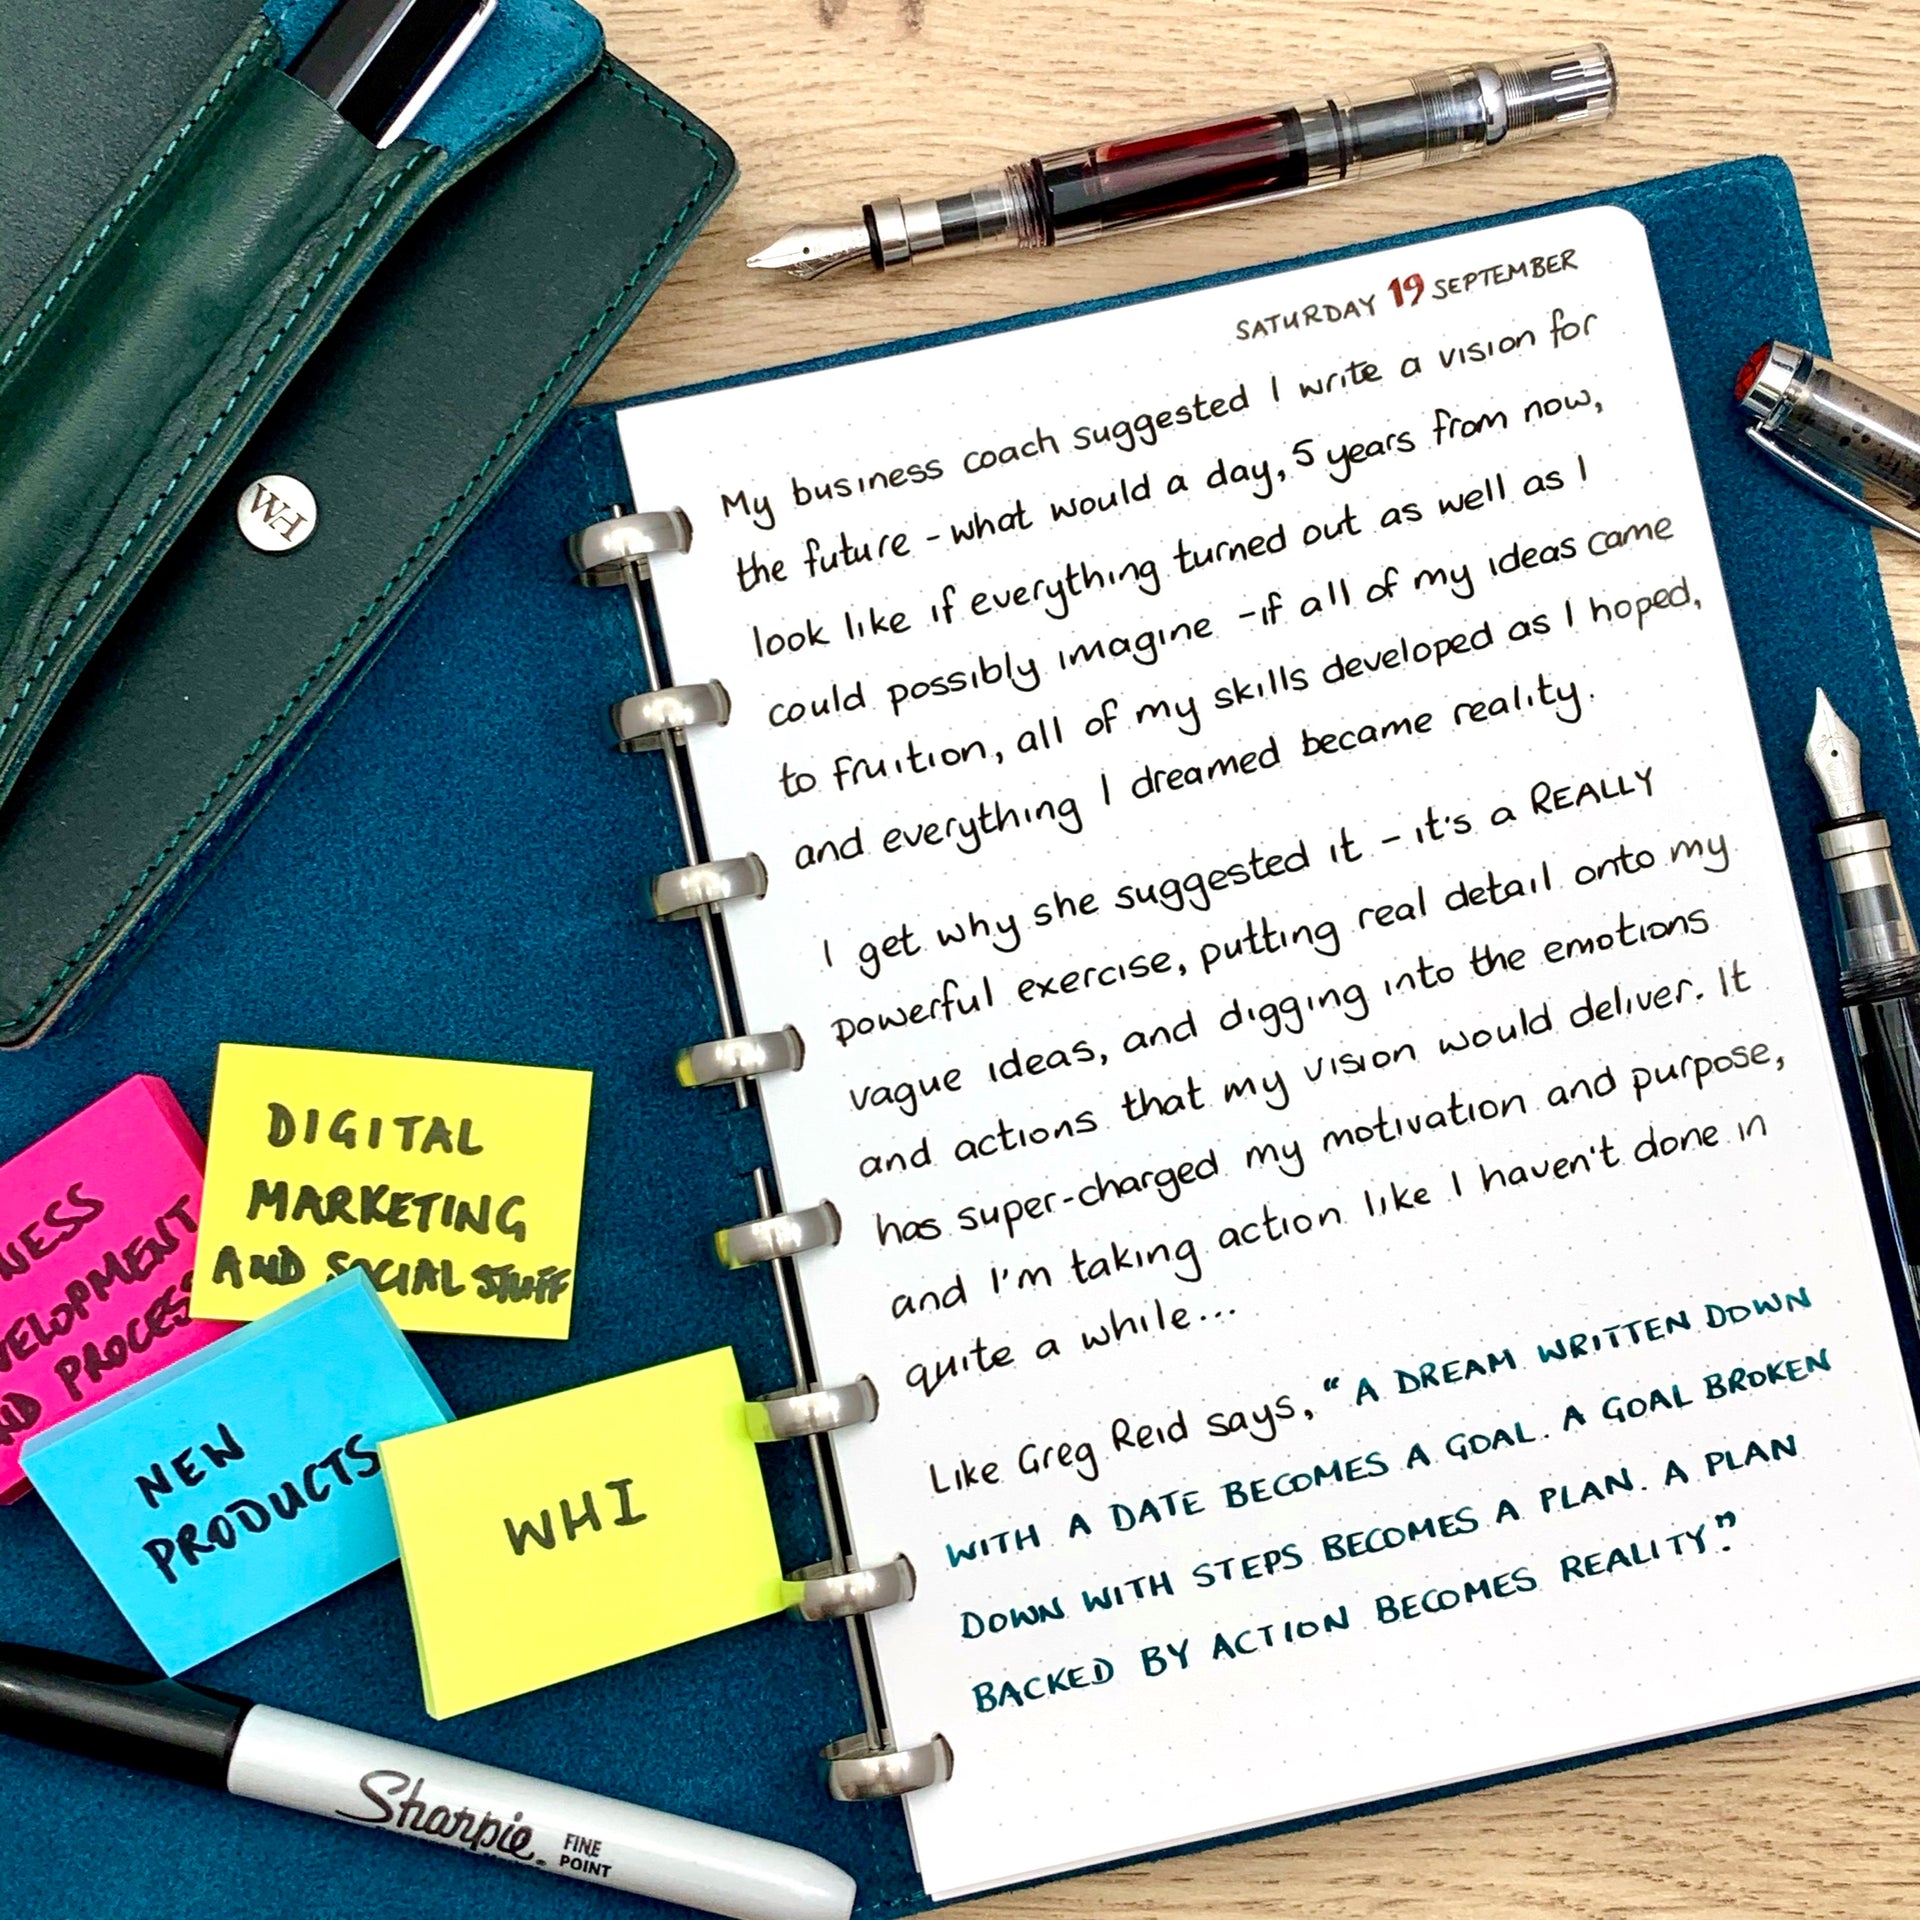 SATURDAY 19 SEPTEMBER
My business coach suggested I write a vision for
the future - what would a day, 5 years from now,
look like if everything turned out as well as I
could possibly imagine - if all of my ideas came
to fruition, all of my skills developed as I hoped,
and everything I dreamed became reality.
I get why she suggested it - it's a REALLY
powerful exercise, putting real detail onto my
vague ideas, and digging into the emotions
and actions that my vision would deliver. It
has super-charged my motivation and purpose,
and I'm taking action like I haven't done in
quite a while...
Like Greg Reid says, "A DREAM WRITTEN DOWN
WITH A DATE BECOMES A GOAL. A GOAL BROKEN
DOWN WITH STEPS BECOMES A PLAN. A PLAN
BACKED BY ACTION BECOMES REALITY".
WH
DIGITAL
MARKETING
AND SOCIAL STUFF
NESS
VELOPMENT
ND PROCESS
NEW
PRODUCTS
WHI
Sharpie.
FINE
POINT